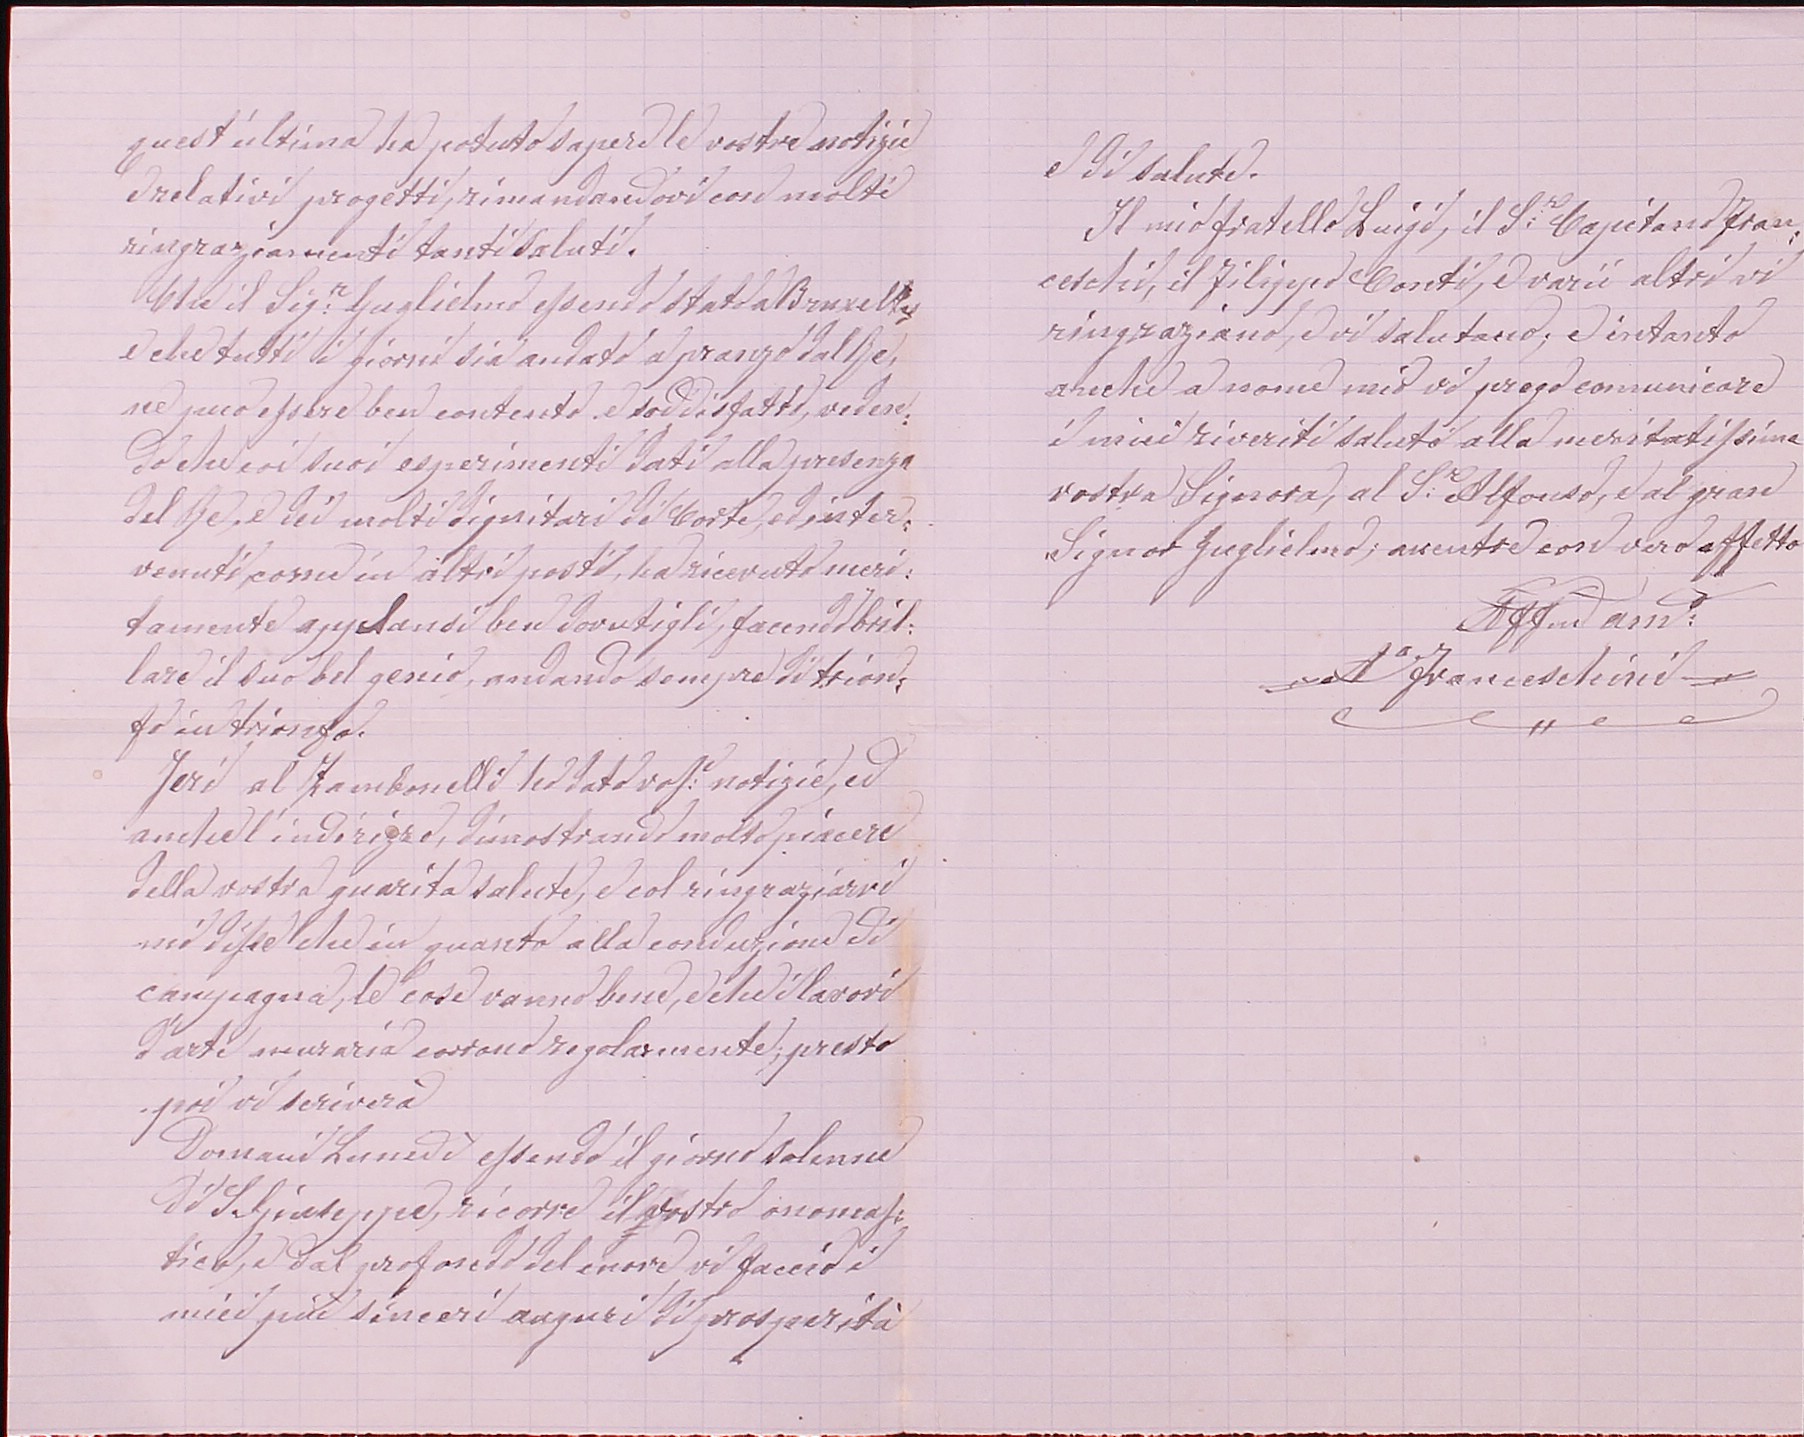 quest'ultima ha potuto sapere le vostre notizie
e relativi progetti, rimandandovi con molti
ringraziamenti tanti saluti.
Che il Sig.r Guglielmo essendo stato a Bruxelles
e che tutti i giorni sia andato a pranzo dal Re,
ne può essere ben contento e soddisfatto, veden:
do che coi suoi esperimenti dati alla presenza
del Re, e dei molti dignitari di Corte, ed inter:
venuti, come in altri posti, ha ricevuto meri:
tamente applausi ben dovutigli, facendo bril:
lare il suo bel genio, andando sempre di trion:
fo in trionfo.
Jeri al Zambonelli ho dato vos:e notizie, ed
anche l'indirizzo, dimostrando molto piacere
della vostra guarita salute, e col ringraziarvi
mi disse che in quanto alla conduzione di
campagna, le cose vanno bene, e che i lavori
d'arte muraria corrono regolarmente; presto
poi vi scriverà
Domani Lunedì essendo il giorno solenne
di S. Giuseppe, ricorre il vostro onomas:
tico, e dal profondo del cuore vi faccio i
miei più sinceri auguri di prosperità
e di salute.
Il mio fratello Luigi, il S:r Capitano Fran:
ceschi, il Filippo Conti, e varii altri vi
ringraziano, e vi salutano; e intanto
anche a nome mio vi prego comunicare
i miei riveriti saluti alla meritatissima
vostra Signora, al S:r Alfonso, e al gran
Signor Guglielmo; mentre con vero affetto
Affmo am:o
A.o Franceschini